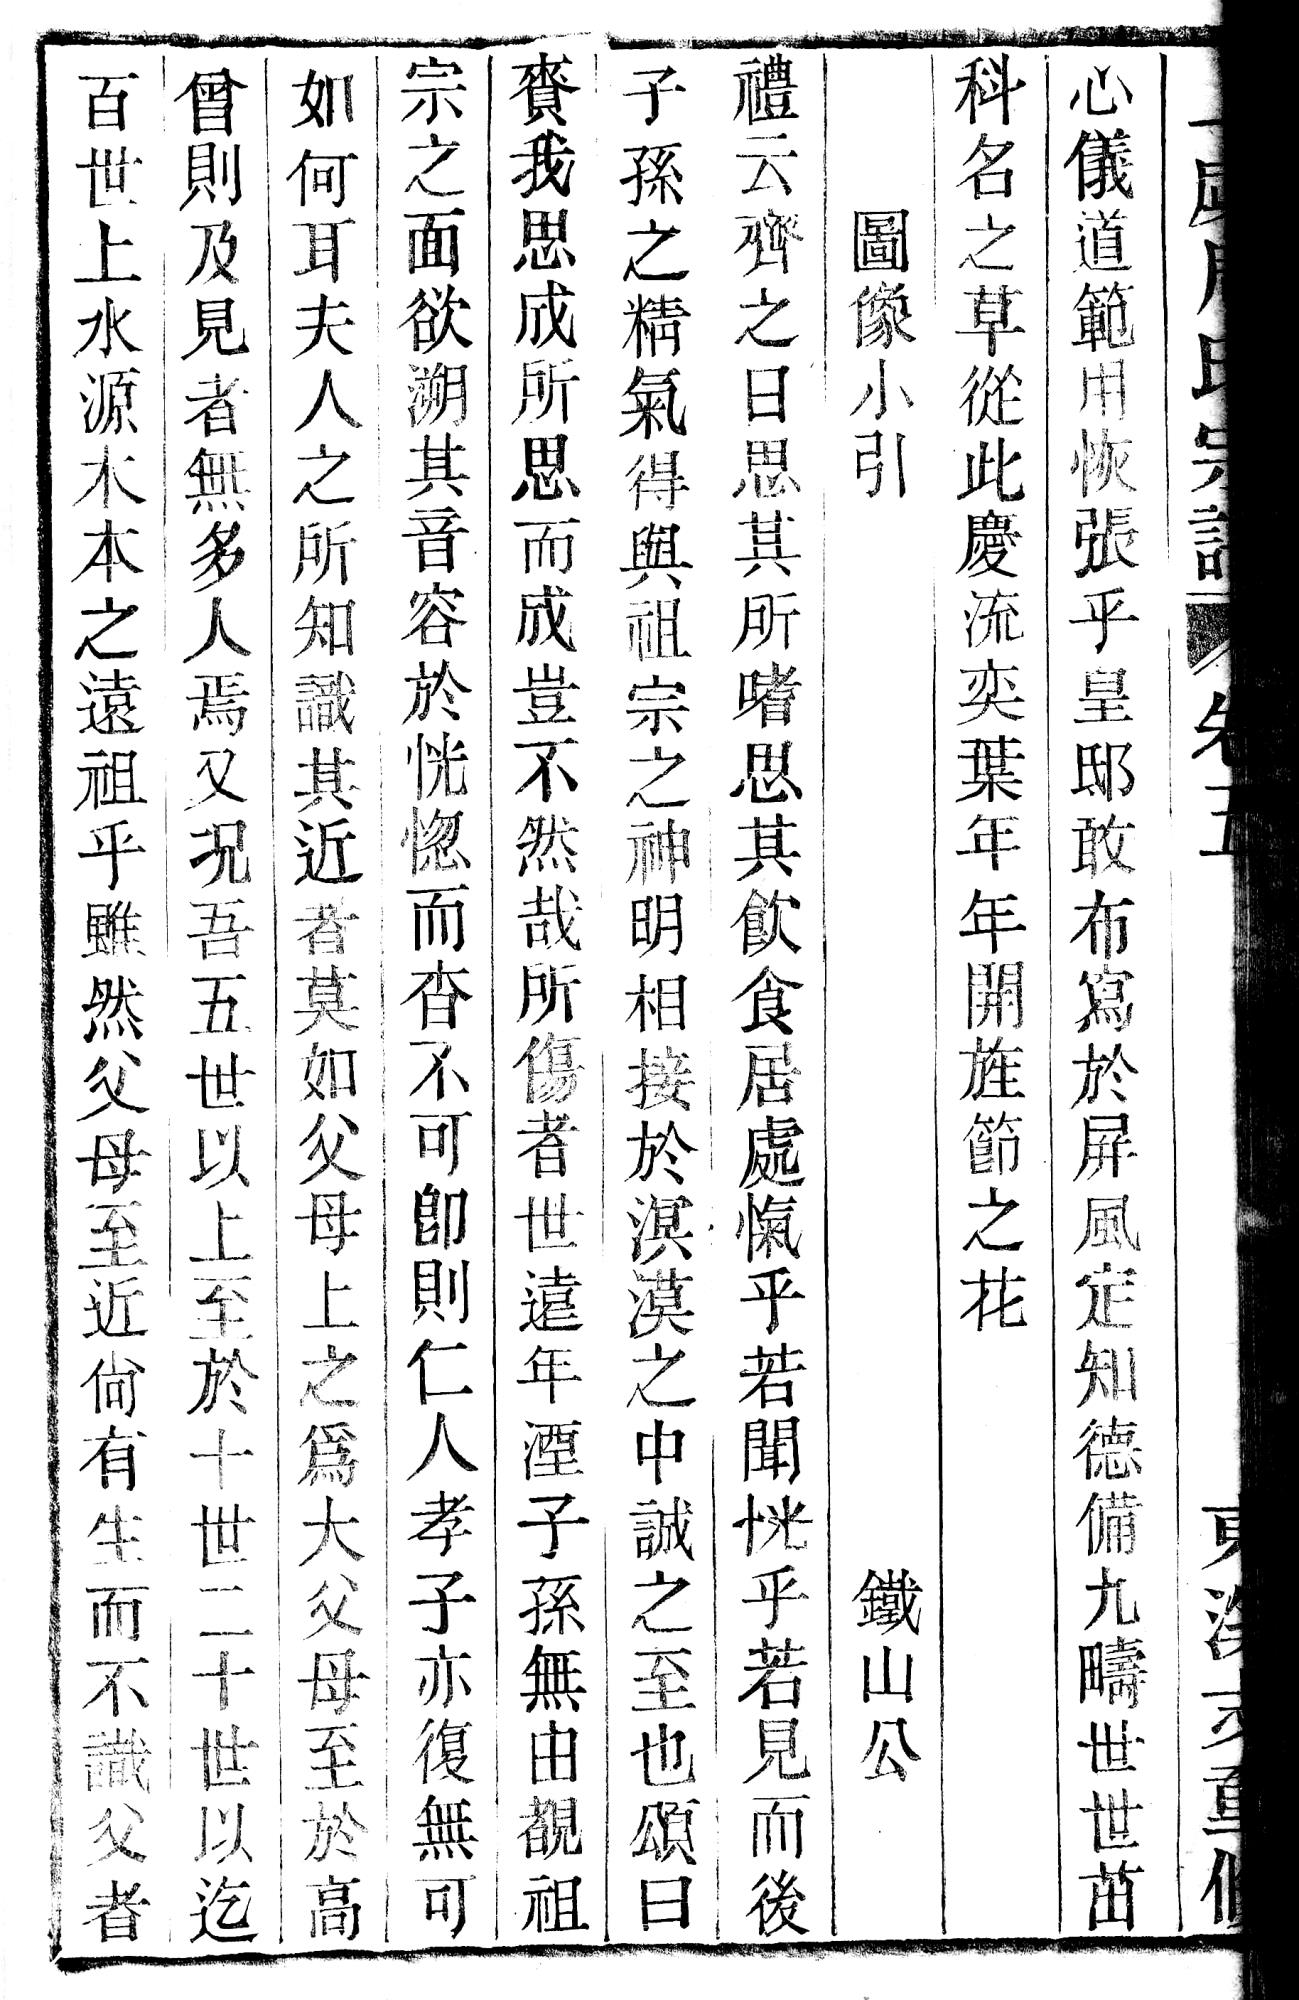 氏宗譜 卷五
重修
心儀道範用恢張乎皇邸敢布寫於屏風定知德備九疇世世茁
科名之草從此慶流奕葉年年開旌節之花
圖像小引 鐵山公
禮云齊之日思其所嗜思其飲食居處愾乎若聞恍乎若見而後
子孫之精氣得與祖宗之神明相接於溟漠之中誠之至也頌曰
賚我思成所思而成豈不然哉所傷者世遠年湮子孫無由覩祖
宗之面欲溯其音容於恍惚而杳不可卽則仁人孝子亦復無可
如何耳夫人之所知識其近者莫如父母上之爲大父母至於高
曾則及見者無多人焉又況吾五世以上至於十世二十世以迄
百世上水源木本之遠祖乎雖然父母至近尙有生而不識父者